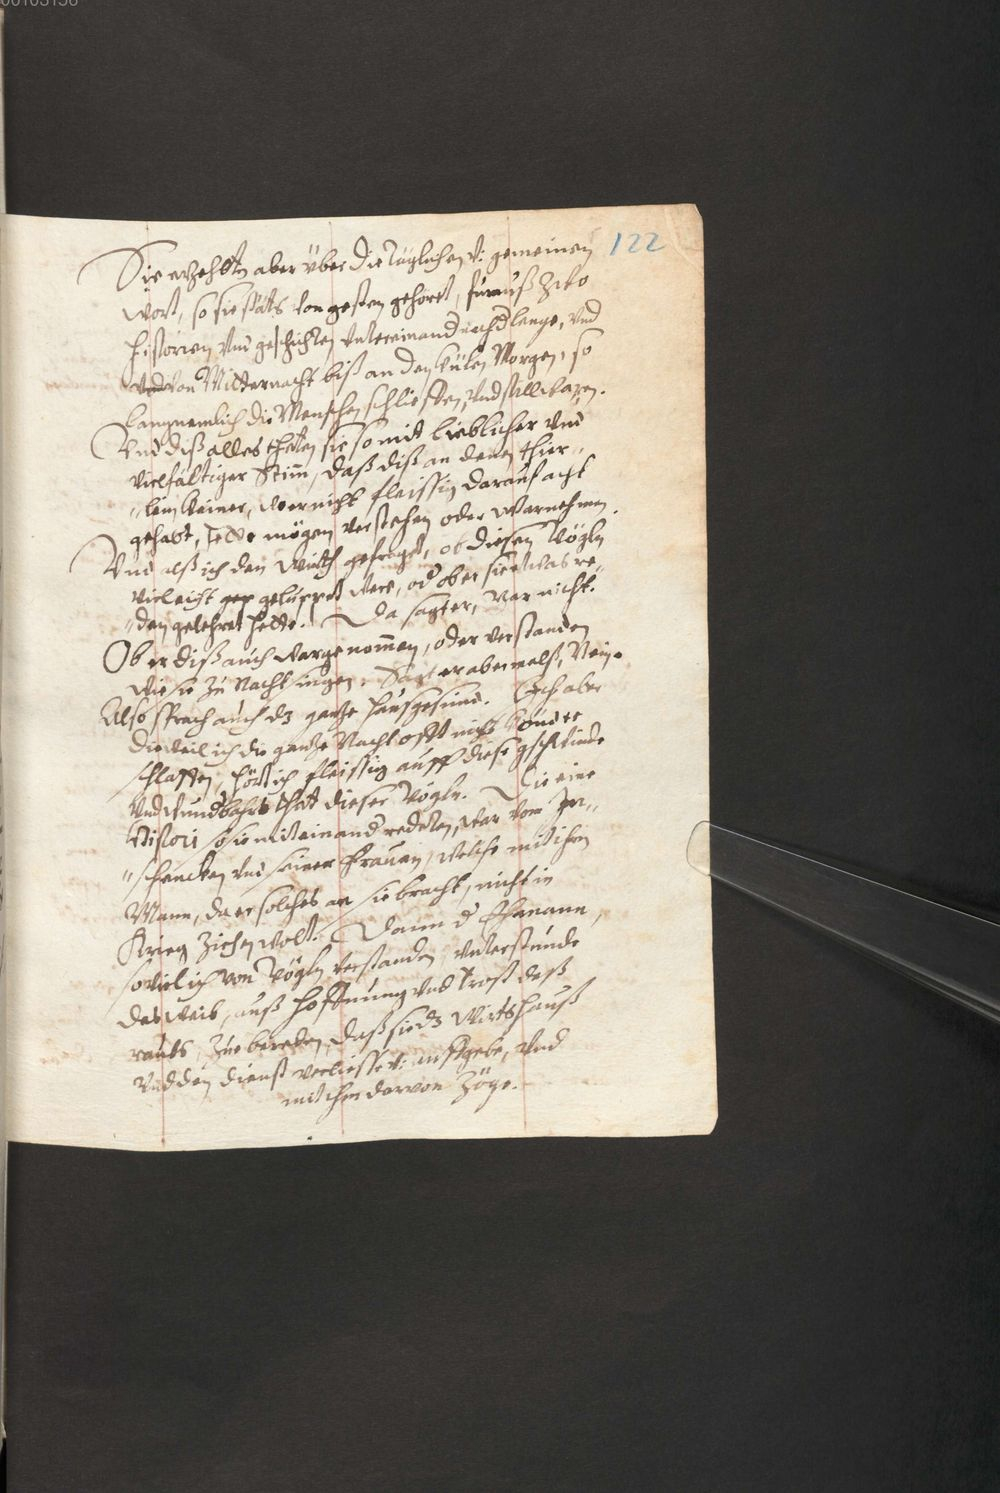 122
Sie erzehltn aber über die Täglichen v: gemeinen
wort, so sie stäts von gesten gehöret, füraus zwo
historien und geschichten untereinand nach d lenge, und
von Mitternacht biß an den külen Morgen, so
lang nemlich die Menschen schlieffen, und still waren.
Und diß alles theten sie so mit lieblicher und
vielfältiger Stim̄, daß diß an denen thier„
„lein keiner, wer nicht fleissig darauf acht
gehabt, hette mögen verstehen oder warnehmen.
Und alß ich den Wirth gefragt, ob diesen Vögln
vieleicht gelüppet were, od ob er sie etwas re„
„den gelehret hette. Da sagt er, Gar nicht.
Ob er diß auch wargenom̄en, oder verstanden
wie sie zu Nacht singen. Sagt er abermalß, Nein.
Also sprach auch dz gantze haußgesind. Ich aber
dieweil ich die gantze Nacht offt nicht könte
schlaffen, hört ich fleissig auff diese gschwinde
und wundbahre that dieser Vögln. Die eine
Histori so sie miteinand redeten, war vom
„schencken und seiner Frauen, welche mit ihm
Mann, da er solches an sie bracht, nicht in
Krieg ziehen wolt. Dann d Ehemann,
soviel ich von Vögln verstanden, unterstunde
das Weib, auß hoffnung und trost deß
raubs, zue bereden, daß sie dz Wirtshauß
und den dienst verliesse v: auffgebe, und
mit ihm darvon zöge.